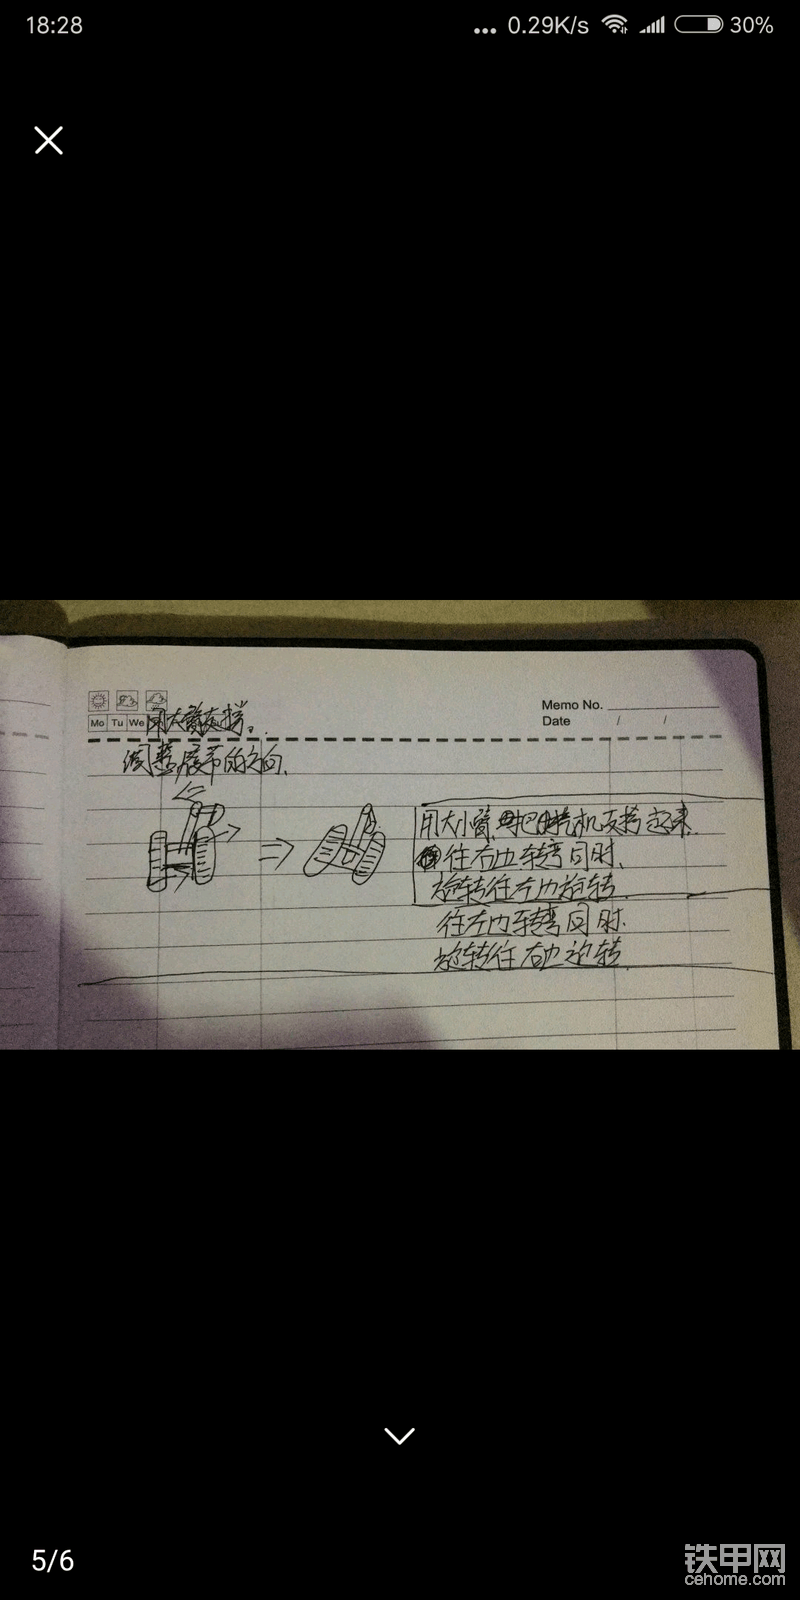 18:28
... 0.29K/s 30%
Memo No.
Mo Tu We
Date / /
用大臂支撑。
调整履带的方向.
用大小臂 把挖机支撑起来.
往右边转弯同时.
旋转往左边旋转
往左边转弯同时.
旋转往右边 旋转
5/6
铁甲网
cehome.com